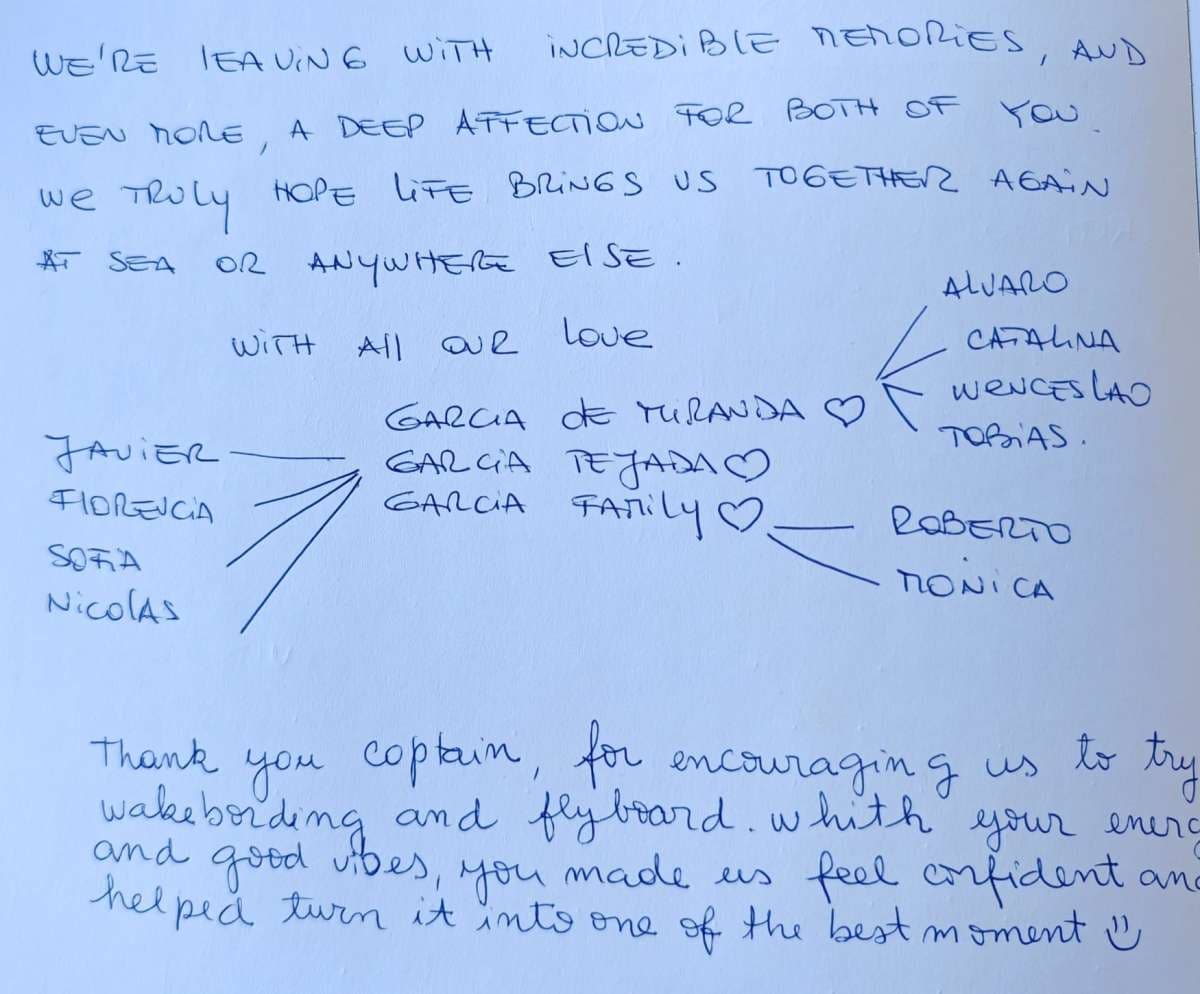 WE'RE lEAVING WiTH INCREDiBlE MEMORiES, AND
EVEN MORE, A DEEP AFFECTION FOR BOTH OF YOU.
We TRULY HOPE LiFE BRINGS US TOGETHER AGAiN
AT SEA OR ANYWHERE ElSE.
WiTH All OUR love
ALVARO
CATALINA
WENCESLAO
TOBiAS.
GARCIA de MIRANDA ♡
GARCiA TEJADA ♡
GARCiA FAMily ♡
JAViER
FlORENCiA
SOFiA
NicolAS
ROBERTO
MONiCA
Thank you coptain, for encouraging us to try
wakebording and flyboard. whith your energ
and good vibes, you made us feel confident and
helped turn it into one of the best moment :)